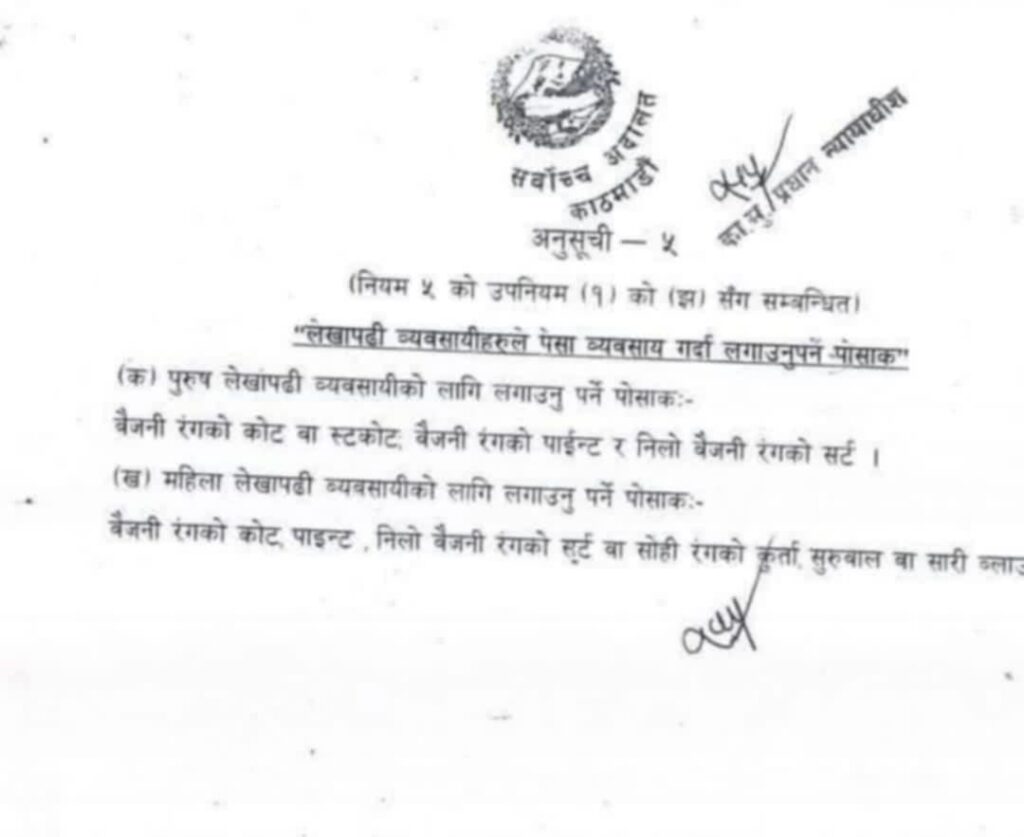 सर्वोच्च अदालत
काठमाडौं
का.मु. प्रधान न्यायाधीश
अनुसूची — ५
(नियम ५ को उपनियम (१) को (झ) सँग सम्बन्धित)
"लेखापढी व्यवसायीहरुले पेसा व्यवसाय गर्दा लगाउनुपर्ने पोसाक"
(क) पुरुष लेखापढी व्यवसायीको लागि लगाउनु पर्ने पोसाकः-
बैजनी रंगको कोट वा स्टकोट, बैजनी रंगको पाईन्ट र निलो बैजनी रंगको सर्ट ।
(ख) महिला लेखापढी व्यवसायीको लागि लगाउनु पर्ने पोसाकः-
बैजनी रंगको कोट, पाइन्ट , निलो बैजनी रंगको सर्ट वा सोही रंगको कुर्ता, सुरुवाल वा सारी